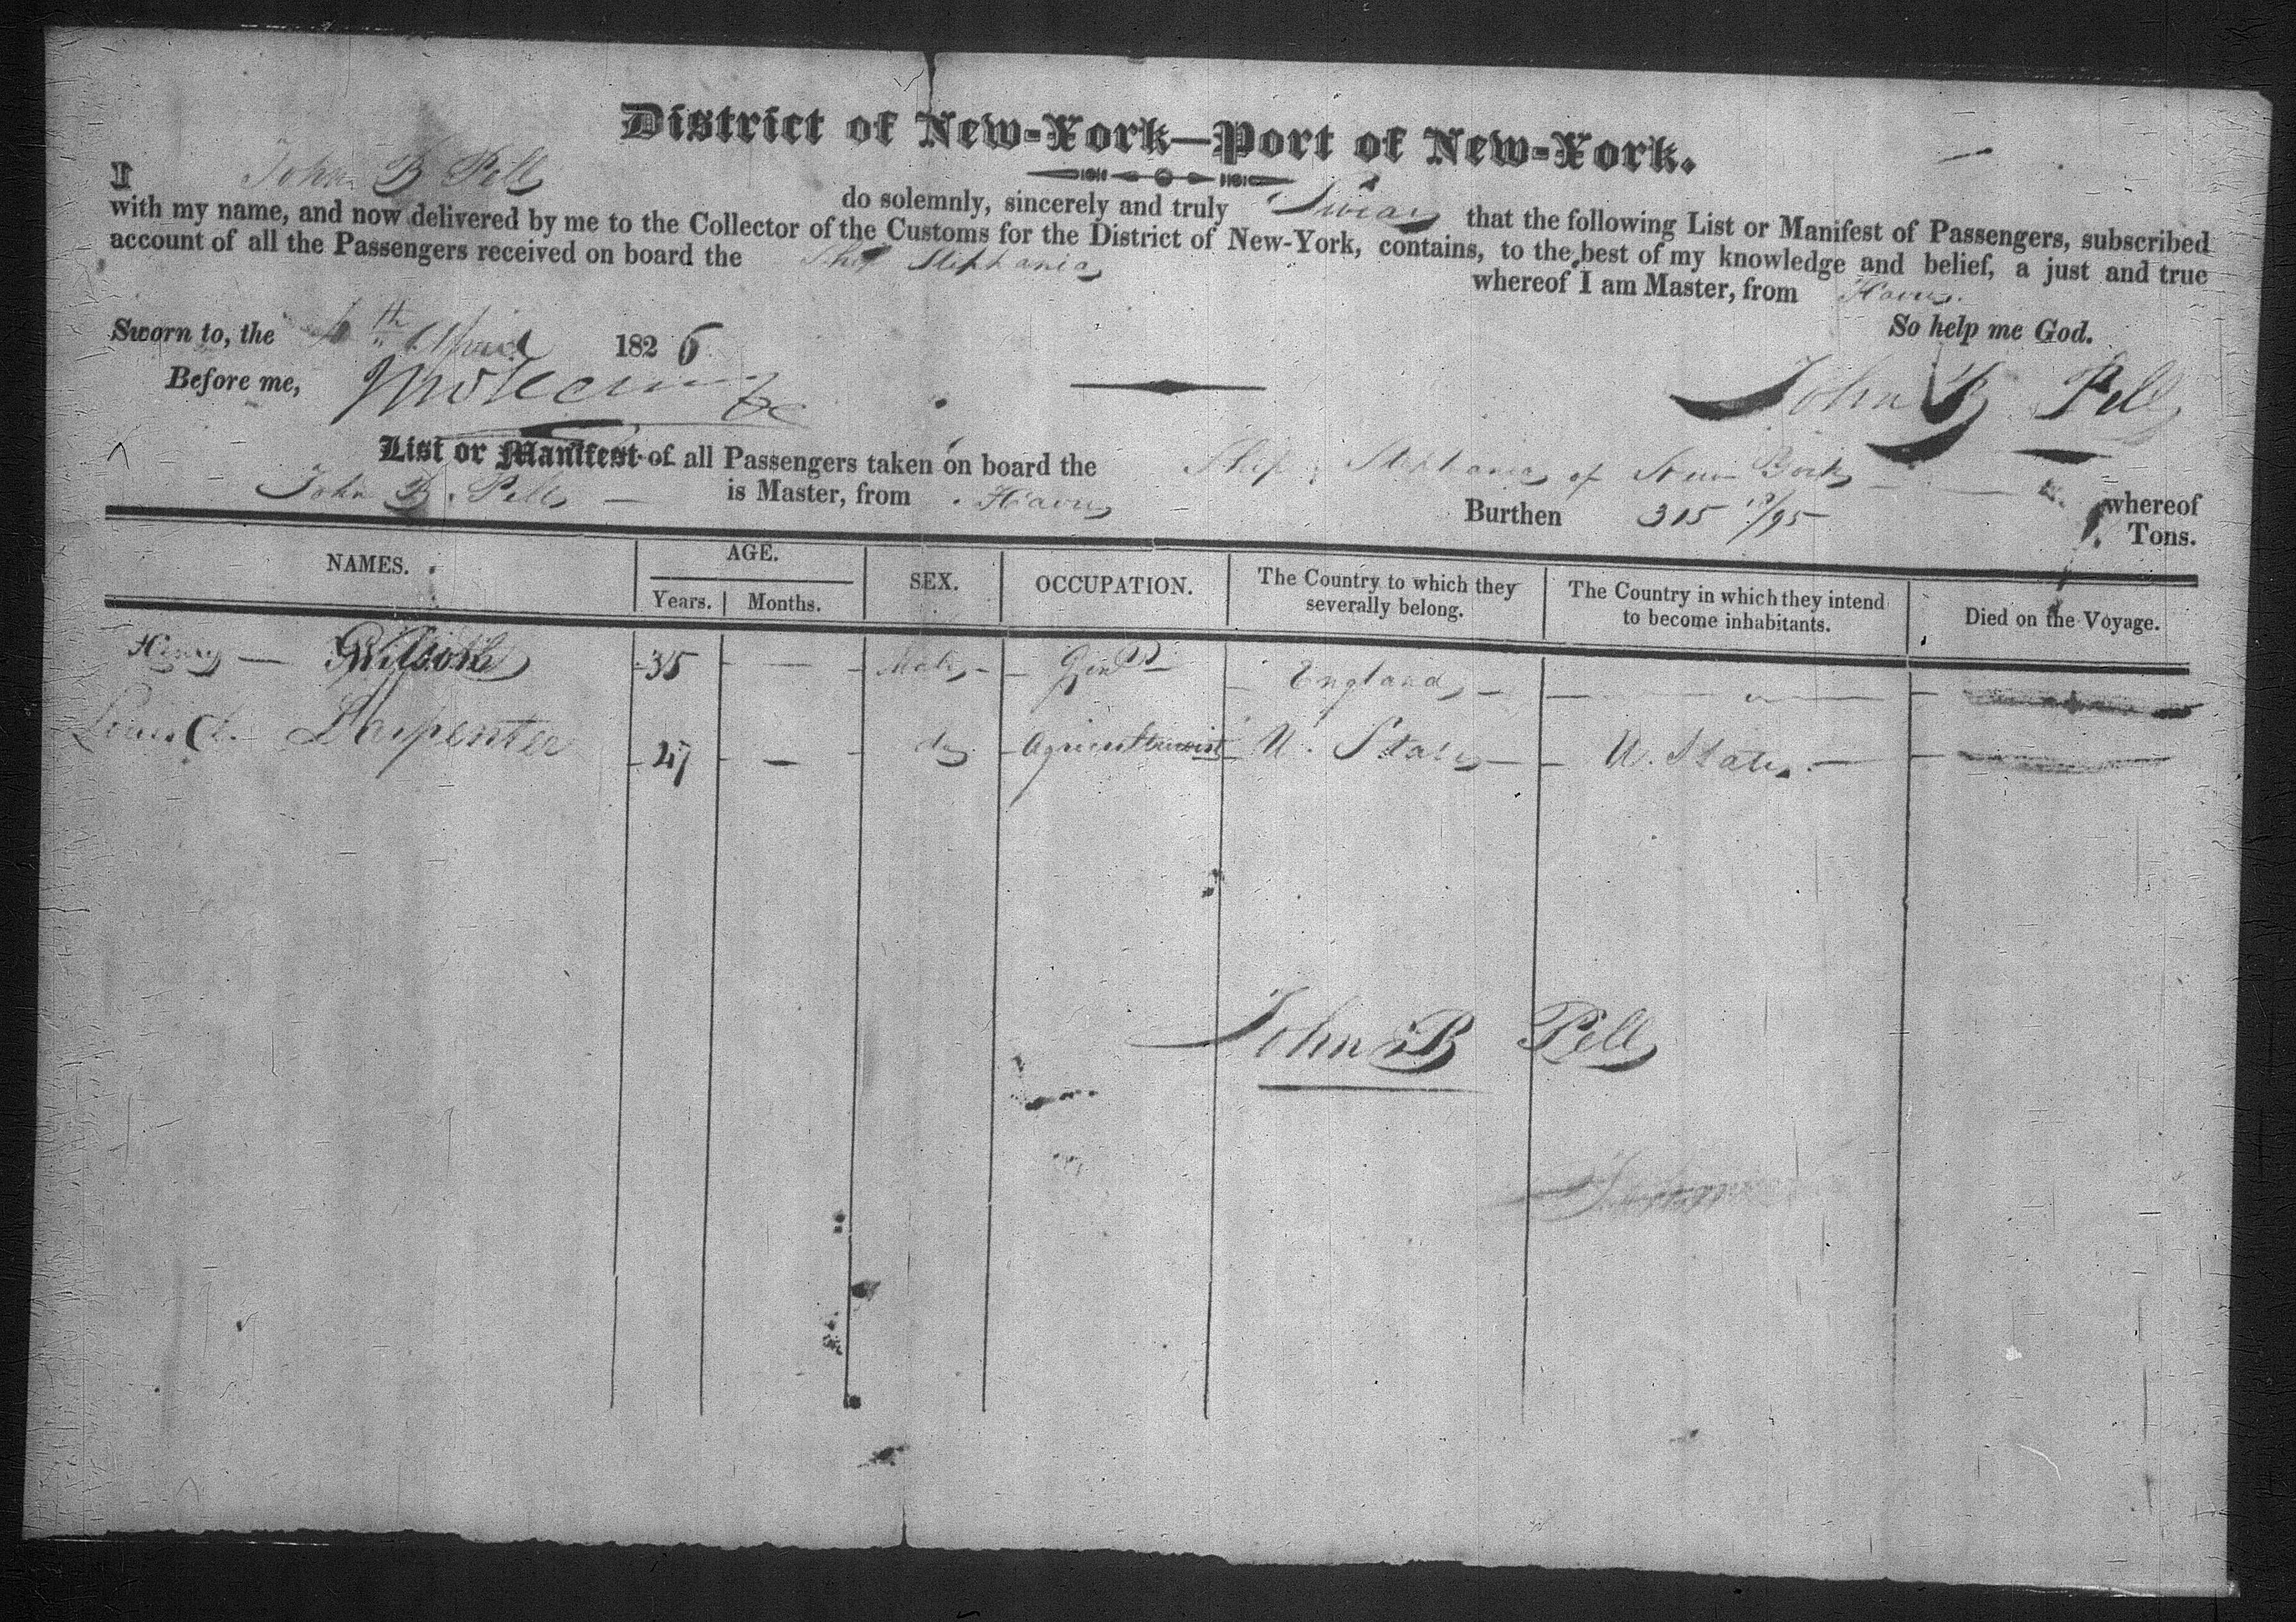 District of New-York—Port of New-York.
I John B Pell do solemnly, sincerely and truly Swear that the following List or Manifest of Passengers, subscribed
with my name, and now delivered by me to the Collector of the Customs for the District of New-York, contains, to the best of my knowledge and belief, a just and true
account of all the Passengers received on board the Ship Stephania whereof I am Master, from Havre.
So help me God.
Sworn to, the th April 1826
Before me,
John B Pell
List or Manifest of all Passengers taken on board the Ship Stephania of New York whereof
John B. Pell — is Master, from Havre Burthen 315 /95 Tons.
NAMES. AGE. SEX. OCCUPATION. The Country to which they severally belong. The Country in which they intend to become inhabitants. Died on the Voyage.
Years. Months.
Henry — 35 — Male Gent England —
Louis 27 — do Agriculturist U. States U. States
John B Pell